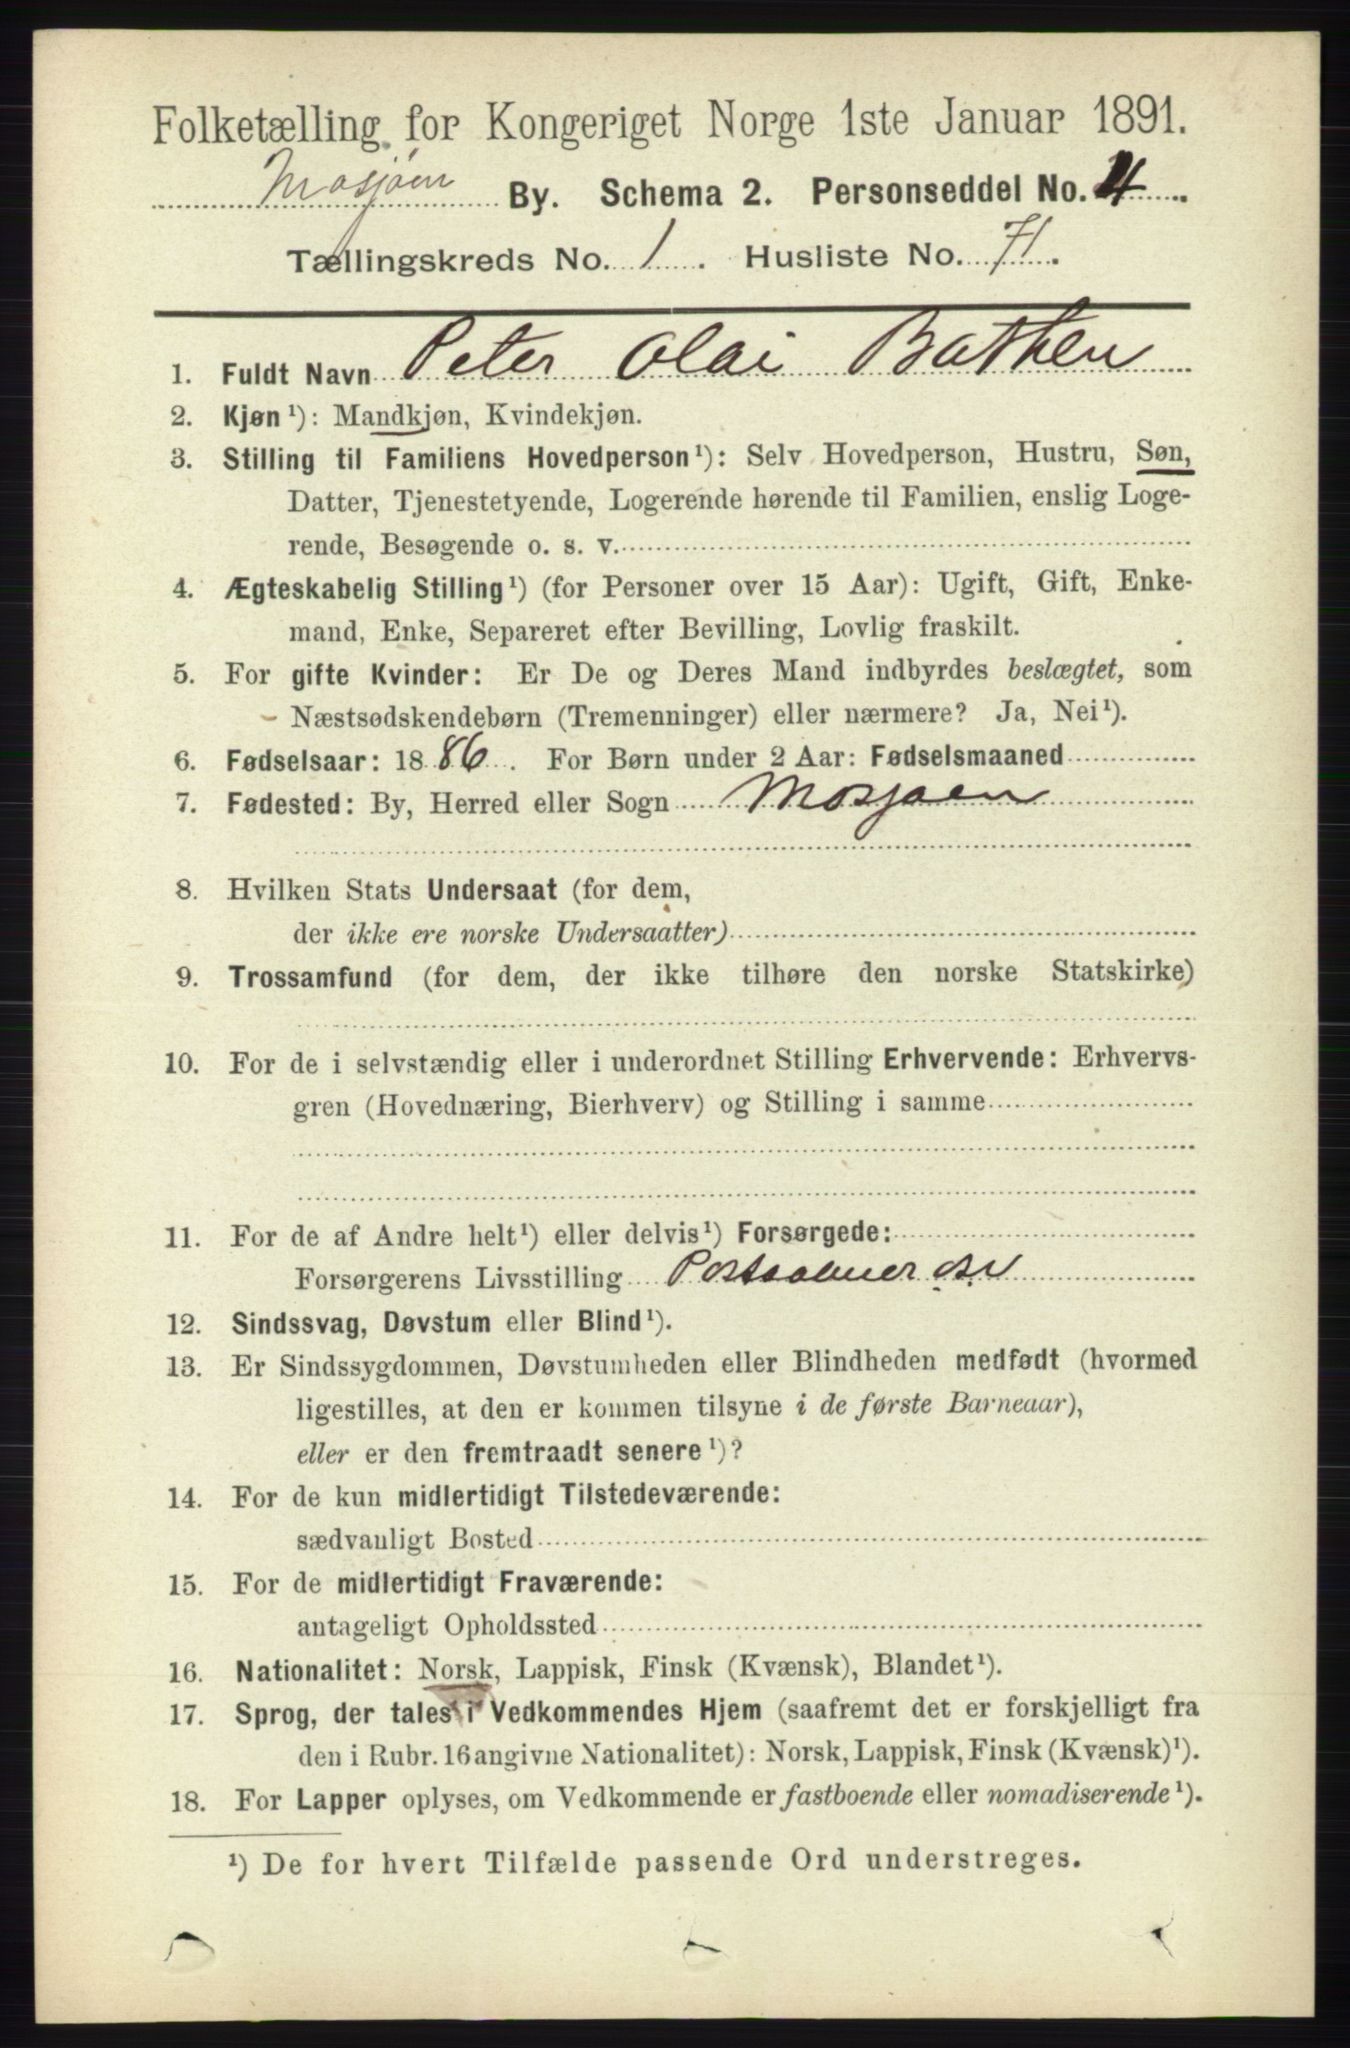 Folketælling for Kongeriget Norge 1ste Januar 1891.
Mosjøen By. Schema 2. Personseddel No. 4
Tællingskreds No. 1. Husliste No. 71.
1. Fuldt Navn Peter Olai Bathen
2. Kjøn¹): Mandkjøn, Kvindekjøn.
3. Stilling til Familiens Hovedperson¹): Selv Hovedperson, Hustru, Søn,
Datter, Tjenestetyende, Logerende hørende til Familien, enslig Loge-
rende, Besøgende o. s. v.
4. Ægteskabelig Stilling¹) (for Personer over 15 Aar): Ugift, Gift, Enke-
mand, Enke, Separeret efter Bevilling, Lovlig fraskilt.
5. For gifte Kvinder: Er De og Deres Mand indbyrdes beslægtet, som
Næstsødskendebørn (Tremenninger) eller nærmere? Ja, Nei¹).
6. Fødselsaar: 1886. For Børn under 2 Aar: Fødselsmaaned
7. Fødested: By, Herred eller Sogn Mosjøen
8. Hvilken Stats Undersaat (for dem,
der ikke ere norske Undersaatter)
9. Trossamfund (for dem, der ikke tilhøre den norske Statskirke)
10. For de i selvstændig eller i underordnet Stilling Erhvervende: Erhvervs-
gren (Hovednæring, Bierhverv) og Stilling i samme
11. For de af Andre helt¹) eller delvis¹) Forsørgede:
Forsørgerens Livsstilling Postaabner osv
12. Sindssvag, Døvstum eller Blind¹).
13. Er Sindssygdommen, Døvstumheden eller Blindheden medfødt (hvormed
ligestilles, at den er kommen tilsyne i de første Barneaar),
eller er den fremtraadt senere¹)?
14. For de kun midlertidigt Tilstedeværende:
sædvanligt Bosted
15. For de midlertidigt Fraværende:
antageligt Opholdssted
16. Nationalitet: Norsk, Lappisk, Finsk (Kvænsk), Blandet¹).
17. Sprog, der tales i Vedkommendes Hjem (saafremt det er forskjelligt fra
den i Rubr. 16 angivne Nationalitet): Norsk, Lappisk, Finsk (Kvænsk)¹).
18. For Lapper oplyses, om Vedkommende er fastboende eller nomadiserende¹).
¹) De for hvert Tilfælde passende Ord understreges.